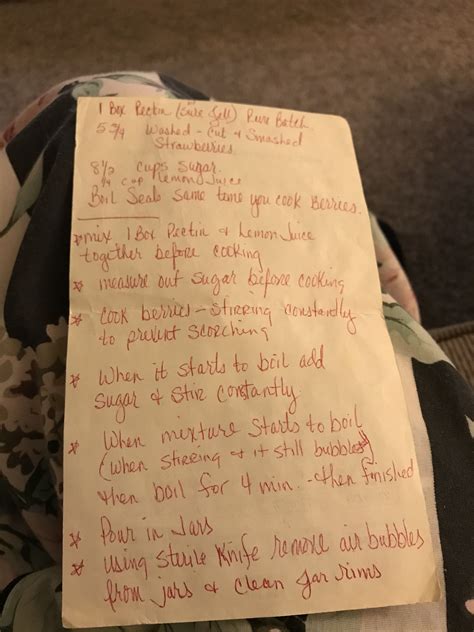 1 Box Pectin (Sure Jell) Pure Batch
5 3/4 Washed - Cut & Smashed
Strawberries
8 1/2 cups sugar
1/4 cup lemon Juice
Boil Seals same time you cook Berries.
* mix 1 Box Pectin & Lemon Juice
together before cooking
* measure out sugar before cooking
* cook berries - stirring constantly
to prevent scorching
* When it starts to boil add
sugar & stir constantly
* When mixture starts to boil
(when stirring & it still bubbles)
then boil for 4 min. - then finished
* Pour in Jars
* using sterile knife remove air bubbles
from jars & clean jar rims